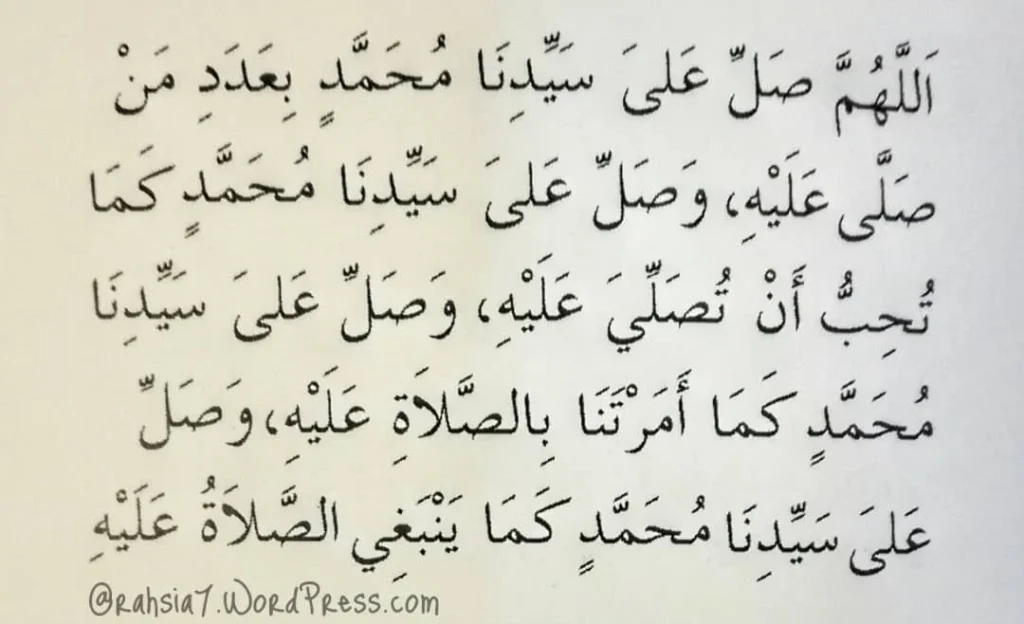 اَللَّهُمَّ صَلِّ عَلىَ سَيِّدِنَا مُحَمَّدٍ بِعَدَدِ مَنْ
صَلَّى عَلَيْهِ، وَصَلِّ عَلىَ سَيِّدِنَا مُحَمَّدٍ كَمَا
تُحِبُّ أَنْ تُصَلِّيَ عَلَيْهِ، وَصَلِّ عَلىَ سَيِّدِنَا
مُحَمَّدٍ كَمَا أَمَرْتَنَا بِالصَّلاَةِ عَلَيْهِ، وَصَلِّ
عَلىَ سَيِّدِنَا مُحَمَّدٍ كَمَا يَنْبَغِي الصَّلاَةُ عَلَيْهِ
@rahsia7.WordPress.com